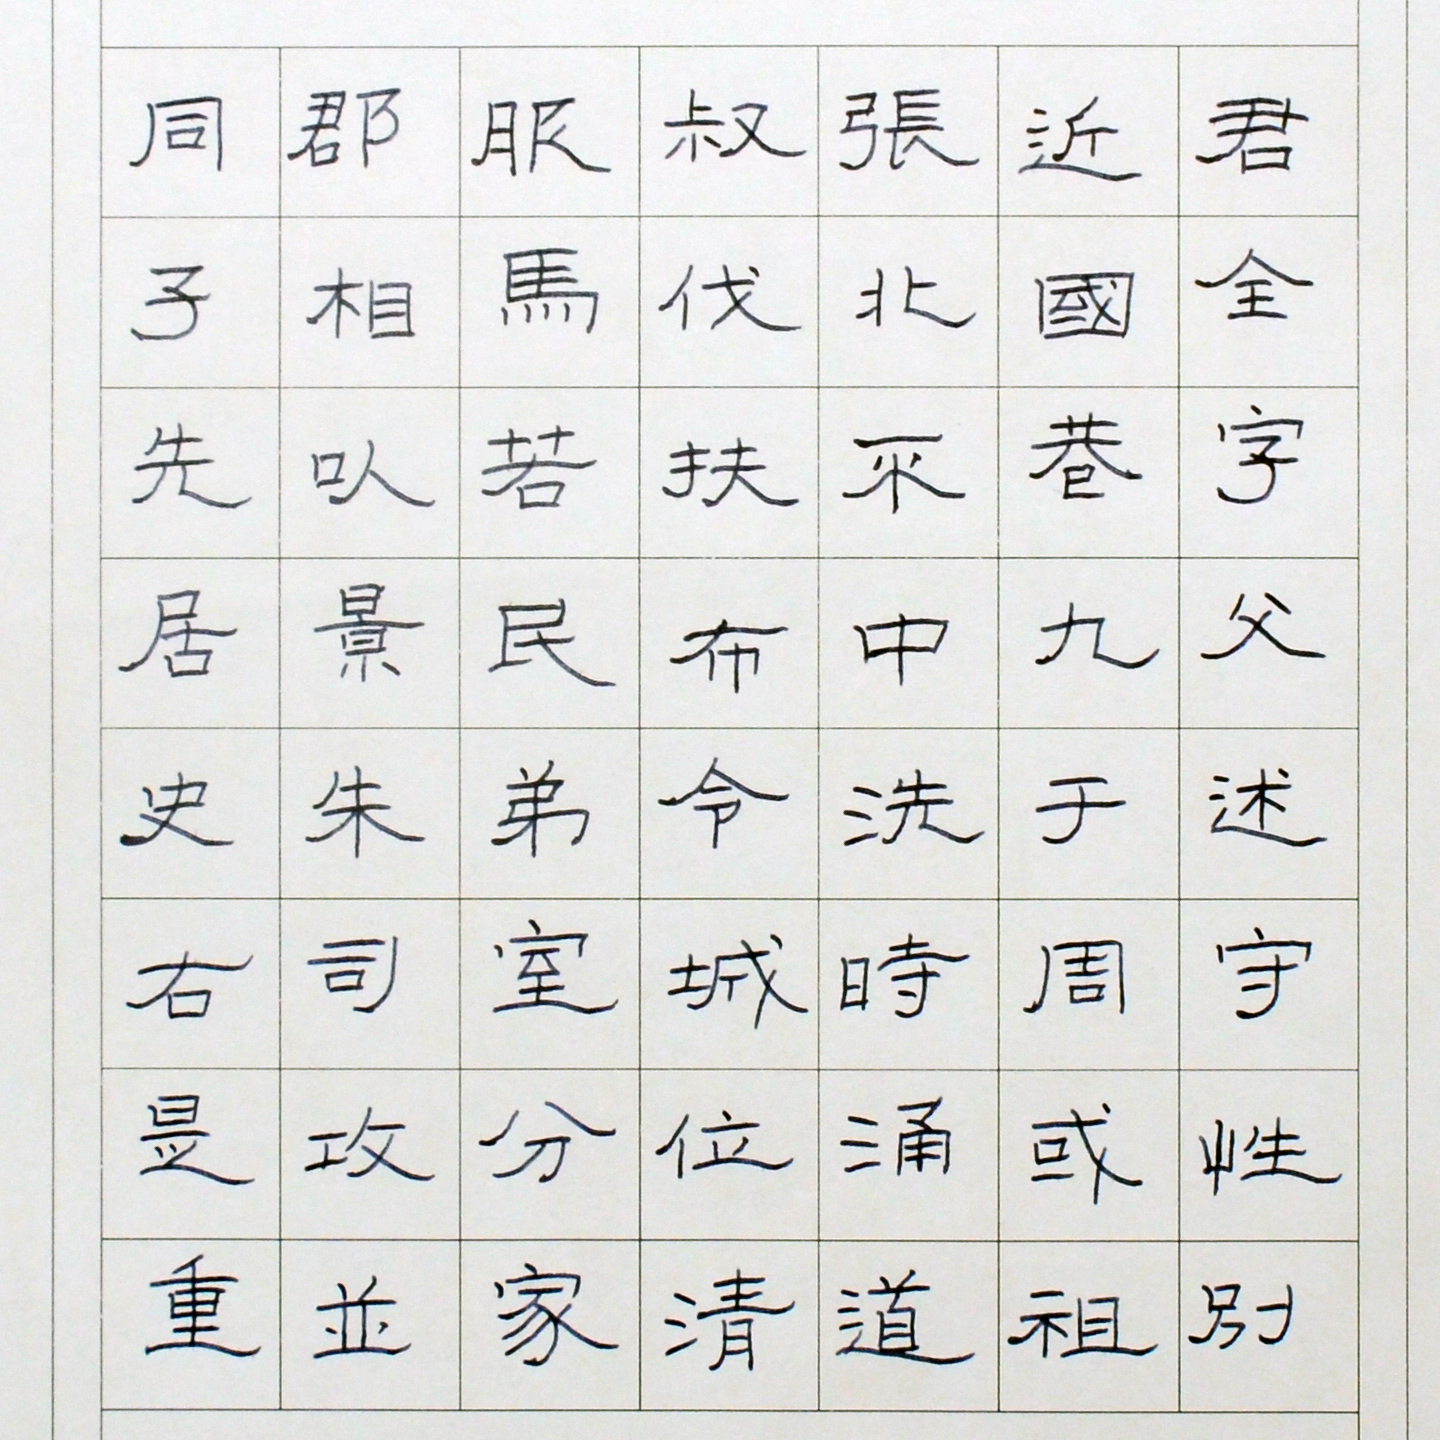 君全字父述守性別
近國巷九于周或祖
張北平中洗時涌道
叔伐扶布令城位清
服馬若民弟室分家
郡相以景朱司攻並
同子先居史右是重